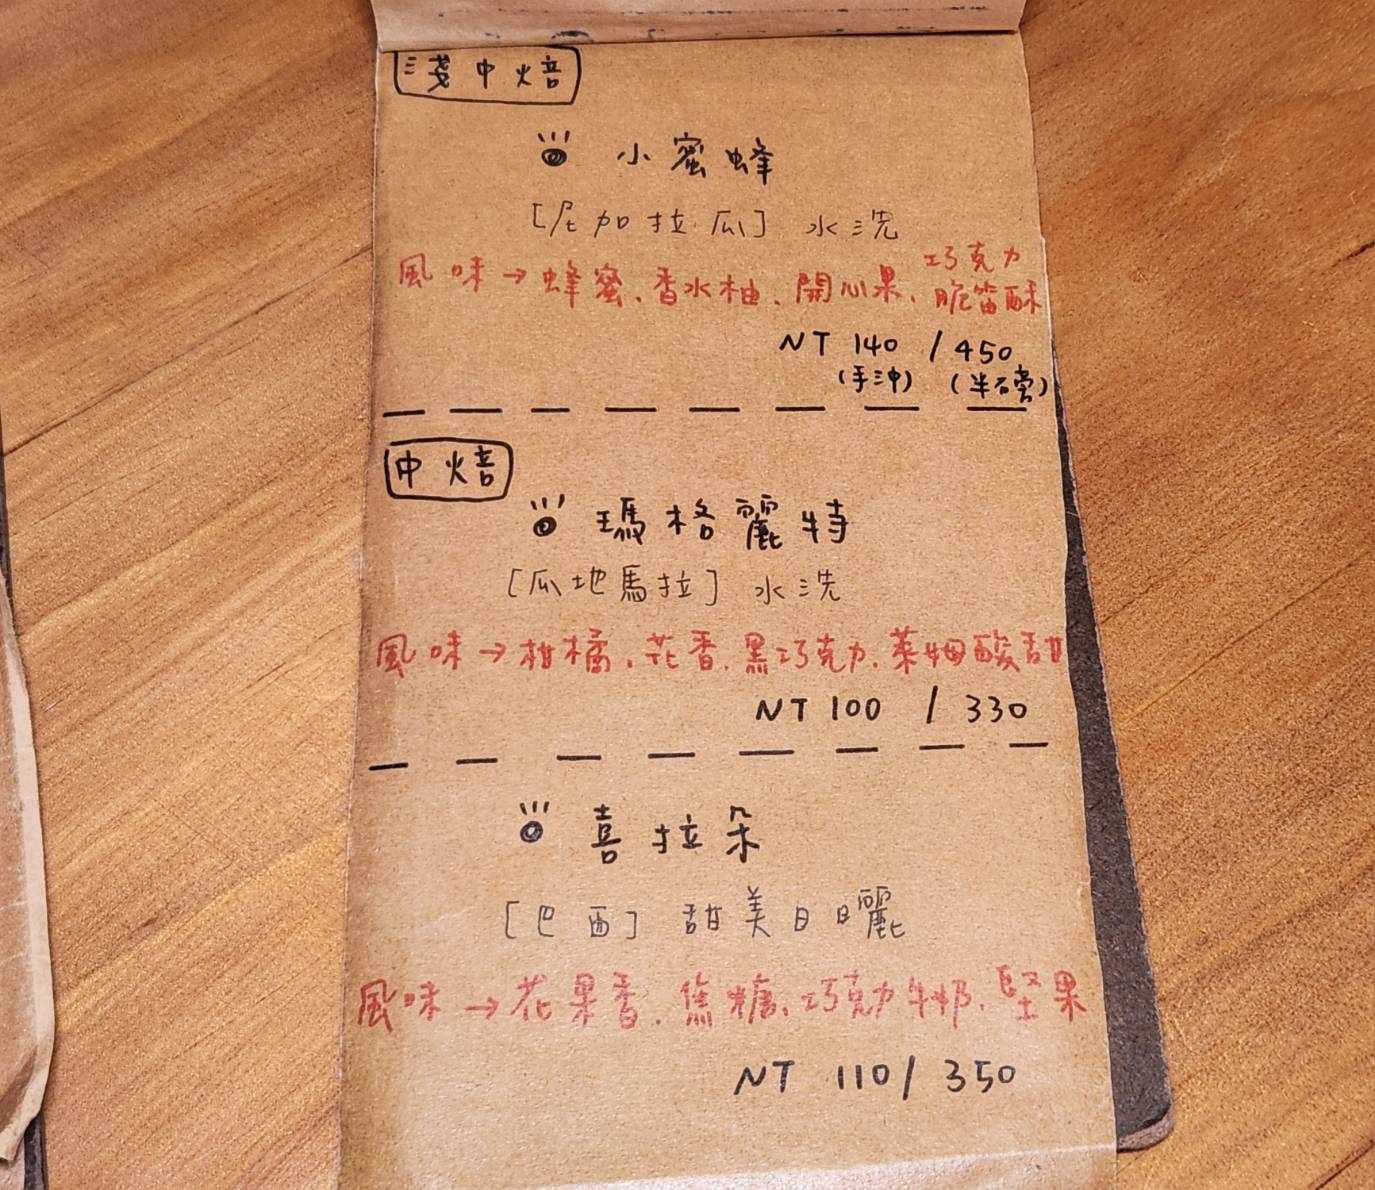 淺中焙
小蜜蜂
[尼加拉瓜] 水洗
風味→蜂蜜、香水柚、開心果、巧克力脆笛酥
NT 140 / 450
(手沖) (半磅)
中焙
瑪格麗特
[瓜地馬拉] 水洗
風味→柑橘、花香、黑巧克力、萊姆酸甜
NT 100 / 330
喜拉朵
[巴西] 甜美日曬
風味→花果香、焦糖、巧克力牛奶、堅果
NT 110 / 350